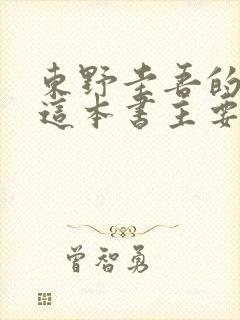 東野圭吾的
這本書主要
曾智勇